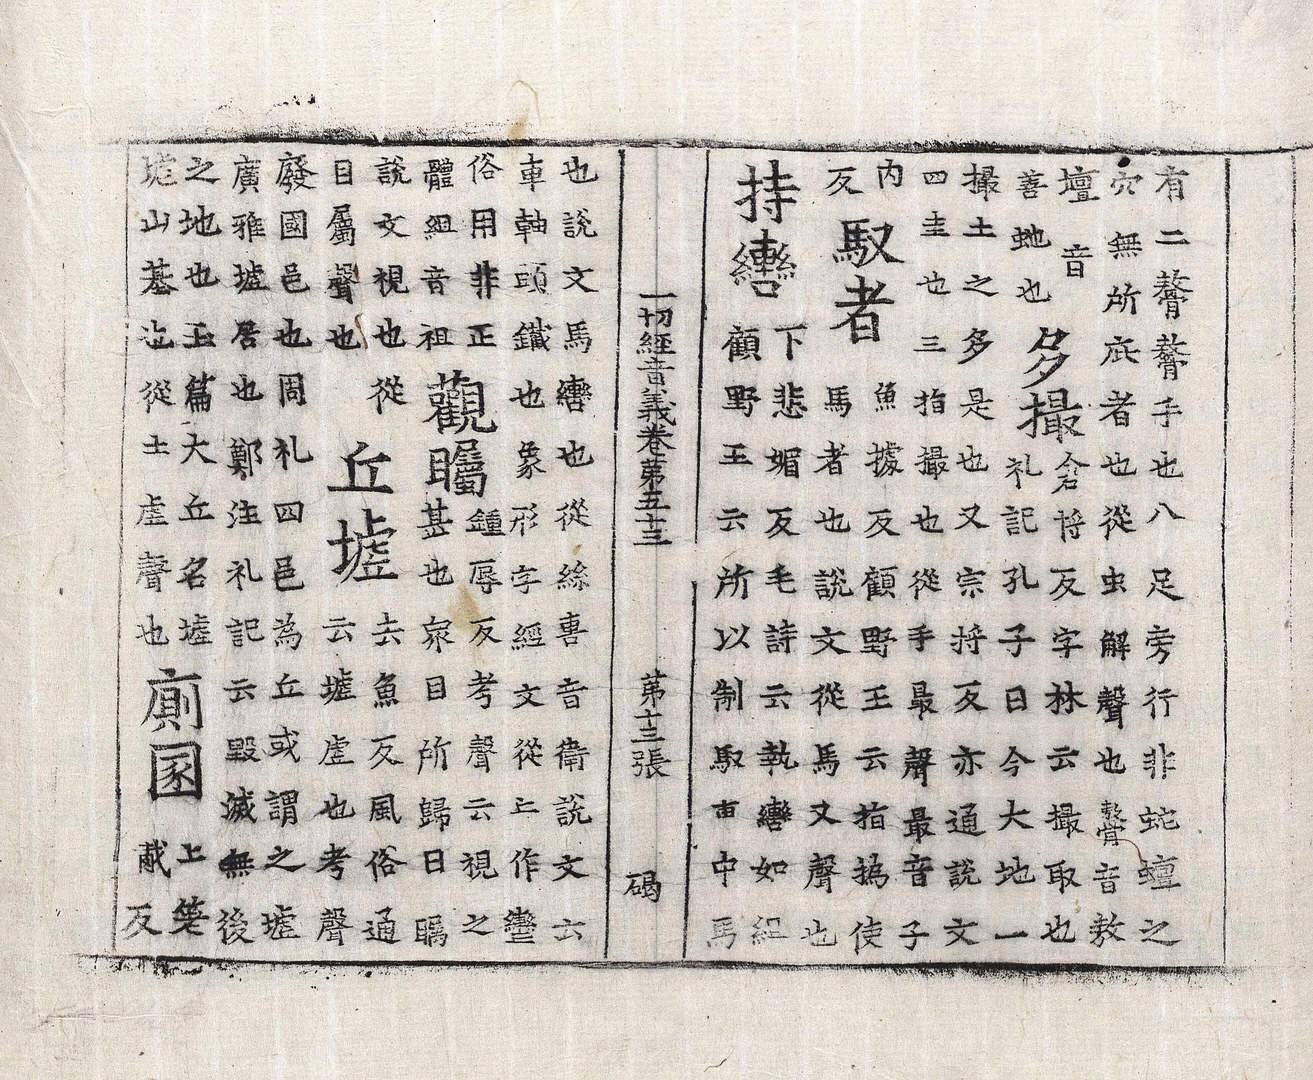 有二螯螯手也八足旁行非蛇蟺之
穴無所庇者也從虫解聲也螯音敖
壇音
善虵也
多撮
倉捋反字林云撮取也
礼記孔子曰今大地一
撮土之多是也又宗捋反亦通說文
四圭也三指撮也從手最聲最音子
內
反
馭者
魚據反顧野王云指撝使
馬者也說文從馬又聲也
持轡
下悲媚反毛詩云執轡如組
顧野王云所以制馭車中馬
一切經音義卷第五十三
第十三張
碣
也說文馬轡也從絲專音衛說文云
車軸頭鐵也象形字經文從亠作
俗用非正
體組音祖
觀矚
鍾辱反考聲云視之
甚也衆目所歸曰矚
說文視也從
目屬聲也
丘墟
去魚反風俗通
云墟虛也考聲
廢國邑也周礼四邑為丘或謂之墟
廣雅墟居也鄭注礼記云毀滅無後
之地也玉篇大丘名墟
墟山墓也從土虛聲也
廁圂
上
反